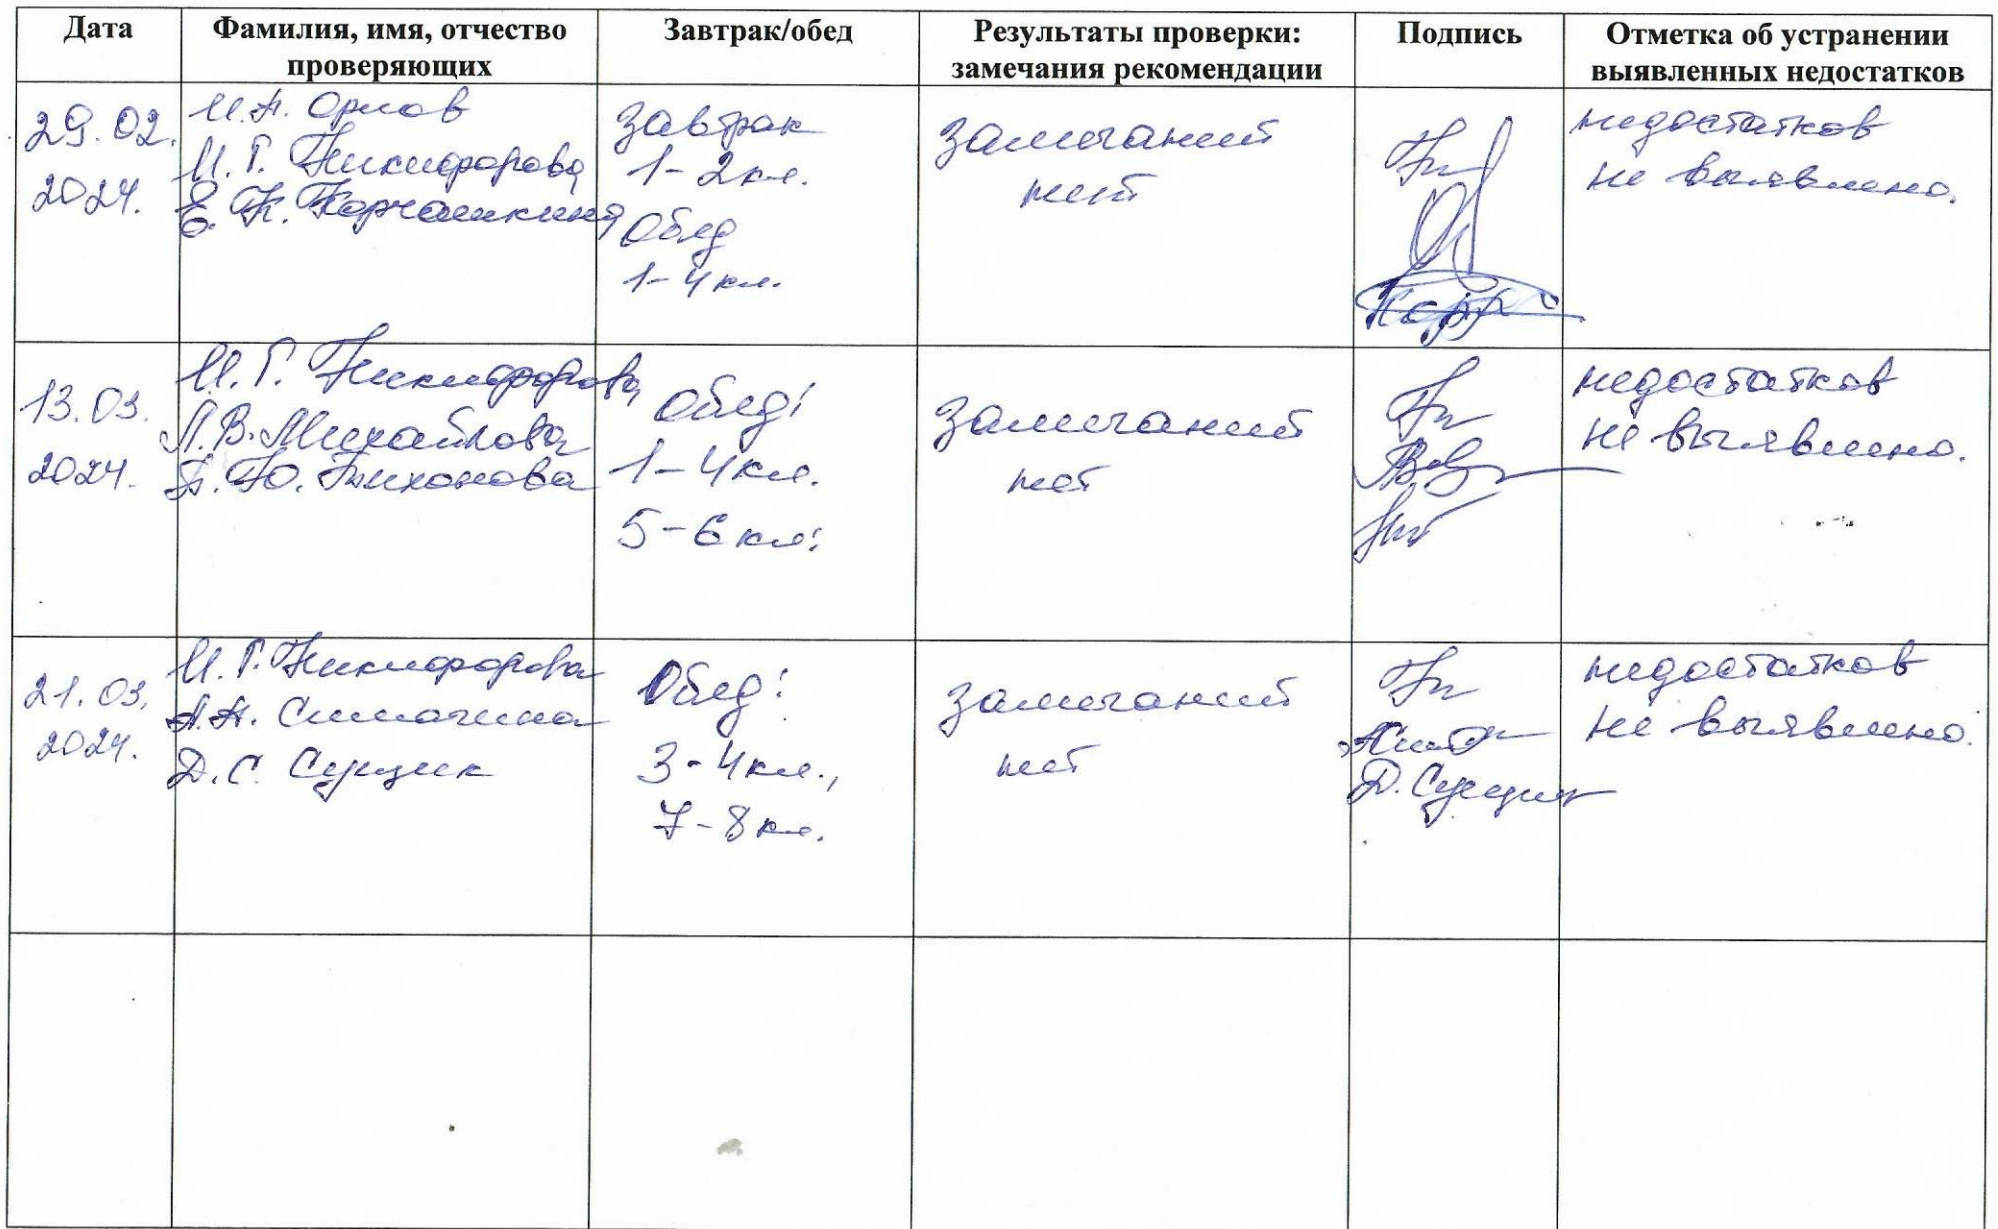 Дата
Фамилия, имя, отчество
проверяющих
Завтрак/обед
Результаты проверки:
замечания рекомендации
Подпись
Отметка об устранении
выявленных недостатков
29.02.
2024.
И.А. Орлов
И.Г. Никифорова
Е.К.
Завтрак
1-2кл.
Обед
1-4кл.
Замечаний
нет
недостатков
не выявлено.
13.03.
2024.
И.Г. Никифорова
Л.В. Михайлова
Ю. Тихонова
Обед:
1-4кл.
5-6кл.
Замечаний
нет
недостатков
не выявлено.
21.03.
2024.
И.Г. Никифорова
А.А. Симачина
Д.С. Сущик
Обед:
3-4кл.,
7-8кл.
Замечаний
нет
Д. Сущик
недостатков
не выявлено.